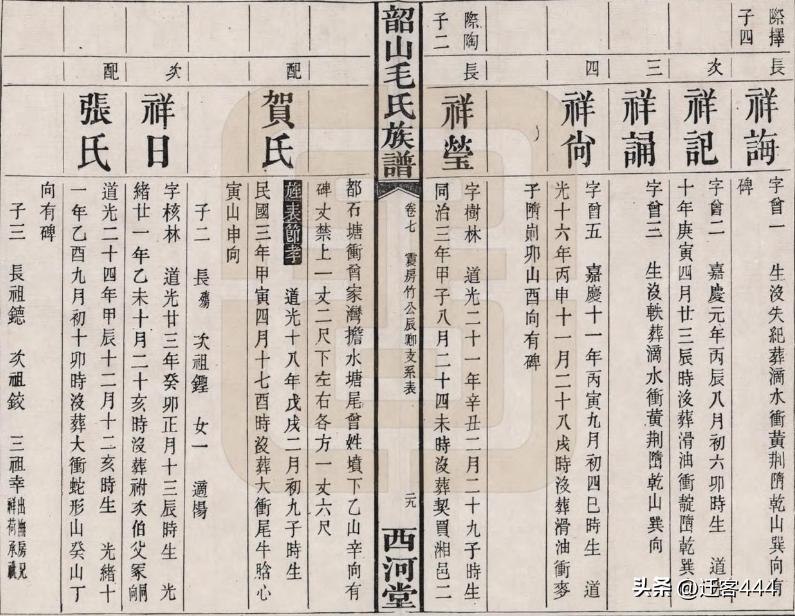 際擇
子四
長
祥誨
字曾一 生沒失紀葬滴水衝黃荆墮乾山巽向有
碑
次
祥記
字曾二 嘉慶元年丙辰八月初六卯時生 道光
十年庚寅四月廿三辰時沒葬滑油衝靛墮乾巽
三
祥誦
字曾三 生沒軼葬滴水衝黃荆墮乾山巽向
四
祥尙
字曾五 嘉慶十一年丙寅九月初四巳時生 道
光十六年丙申十一月二十八戌時沒葬滑油衝麥
子墮 卯山酉向有碑
際陶
子二
長
祥瑩
字樹林 道光二十一年辛丑二月二十九子時生
同治三年甲子八月二十四未時沒葬契買湘邑二
韶山毛氏族譜
卷七 震房竹公辰卿支系表
元
西河堂
都石塘衝曾家灣擔水塘尾曾姓墳下乙山辛向有
碑丈禁上一丈二尺下左右各方一丈六尺
配
賀氏
旌表節孝 道光十八年戊戌二月初九子時生
民國三年甲寅四月十七酉時沒葬大衝尾牛 心
寅山申向
子二 長殤 次祖鏗 女一 適楊
次
祥日
字核林 道光廿三年癸卯正月十三辰時生 光
緒廿一年乙未十月二十亥時沒葬祔次伯父冢同向
配
張氏
道光二十四年甲辰十二月十二亥時生 光緒十
一年乙酉九月初十卯時沒葬大衝蛇形山癸山丁
向有碑
子三 長祖鏸 次祖鉸 三祖幸出撫房兄祥荷承祧
头条 @迁客444